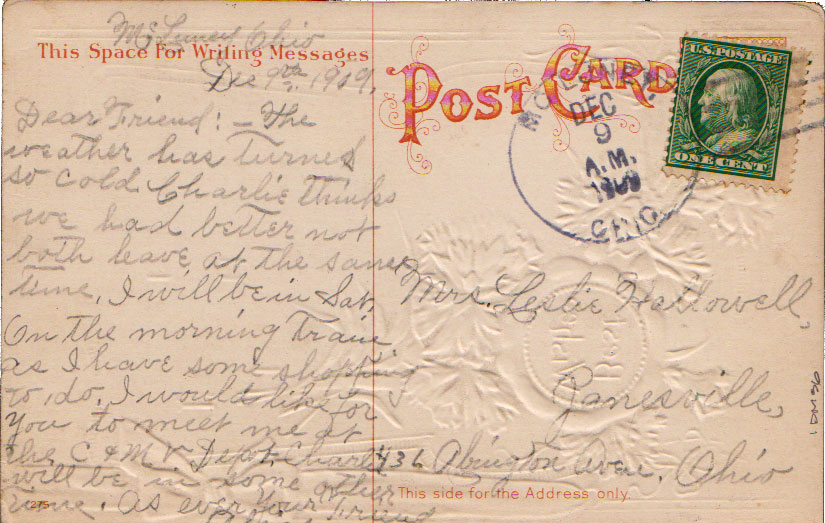 McLuney Ohio
This Space for Writing Messages
Dec 9th, 1909.
Dear Friend: - The
weather has turned
so cold Charlie thinks
we had better not
both leave at the same
time, I will be in Sat,
On the morning Train
as I have some shopping
to do, I would like for
you to meet me at
the C & M V Dept. Charlie
will be in some other
time. As ever your Friend
275
POST CARD
MCLUNEY
DEC
9
A.M.
1909
OHIO
U.S. POSTAGE
ONE CENT
Mrs. Leslie Hallowell,
Zanesville,
436 Abington Ave. Ohio
This side for the Address only.